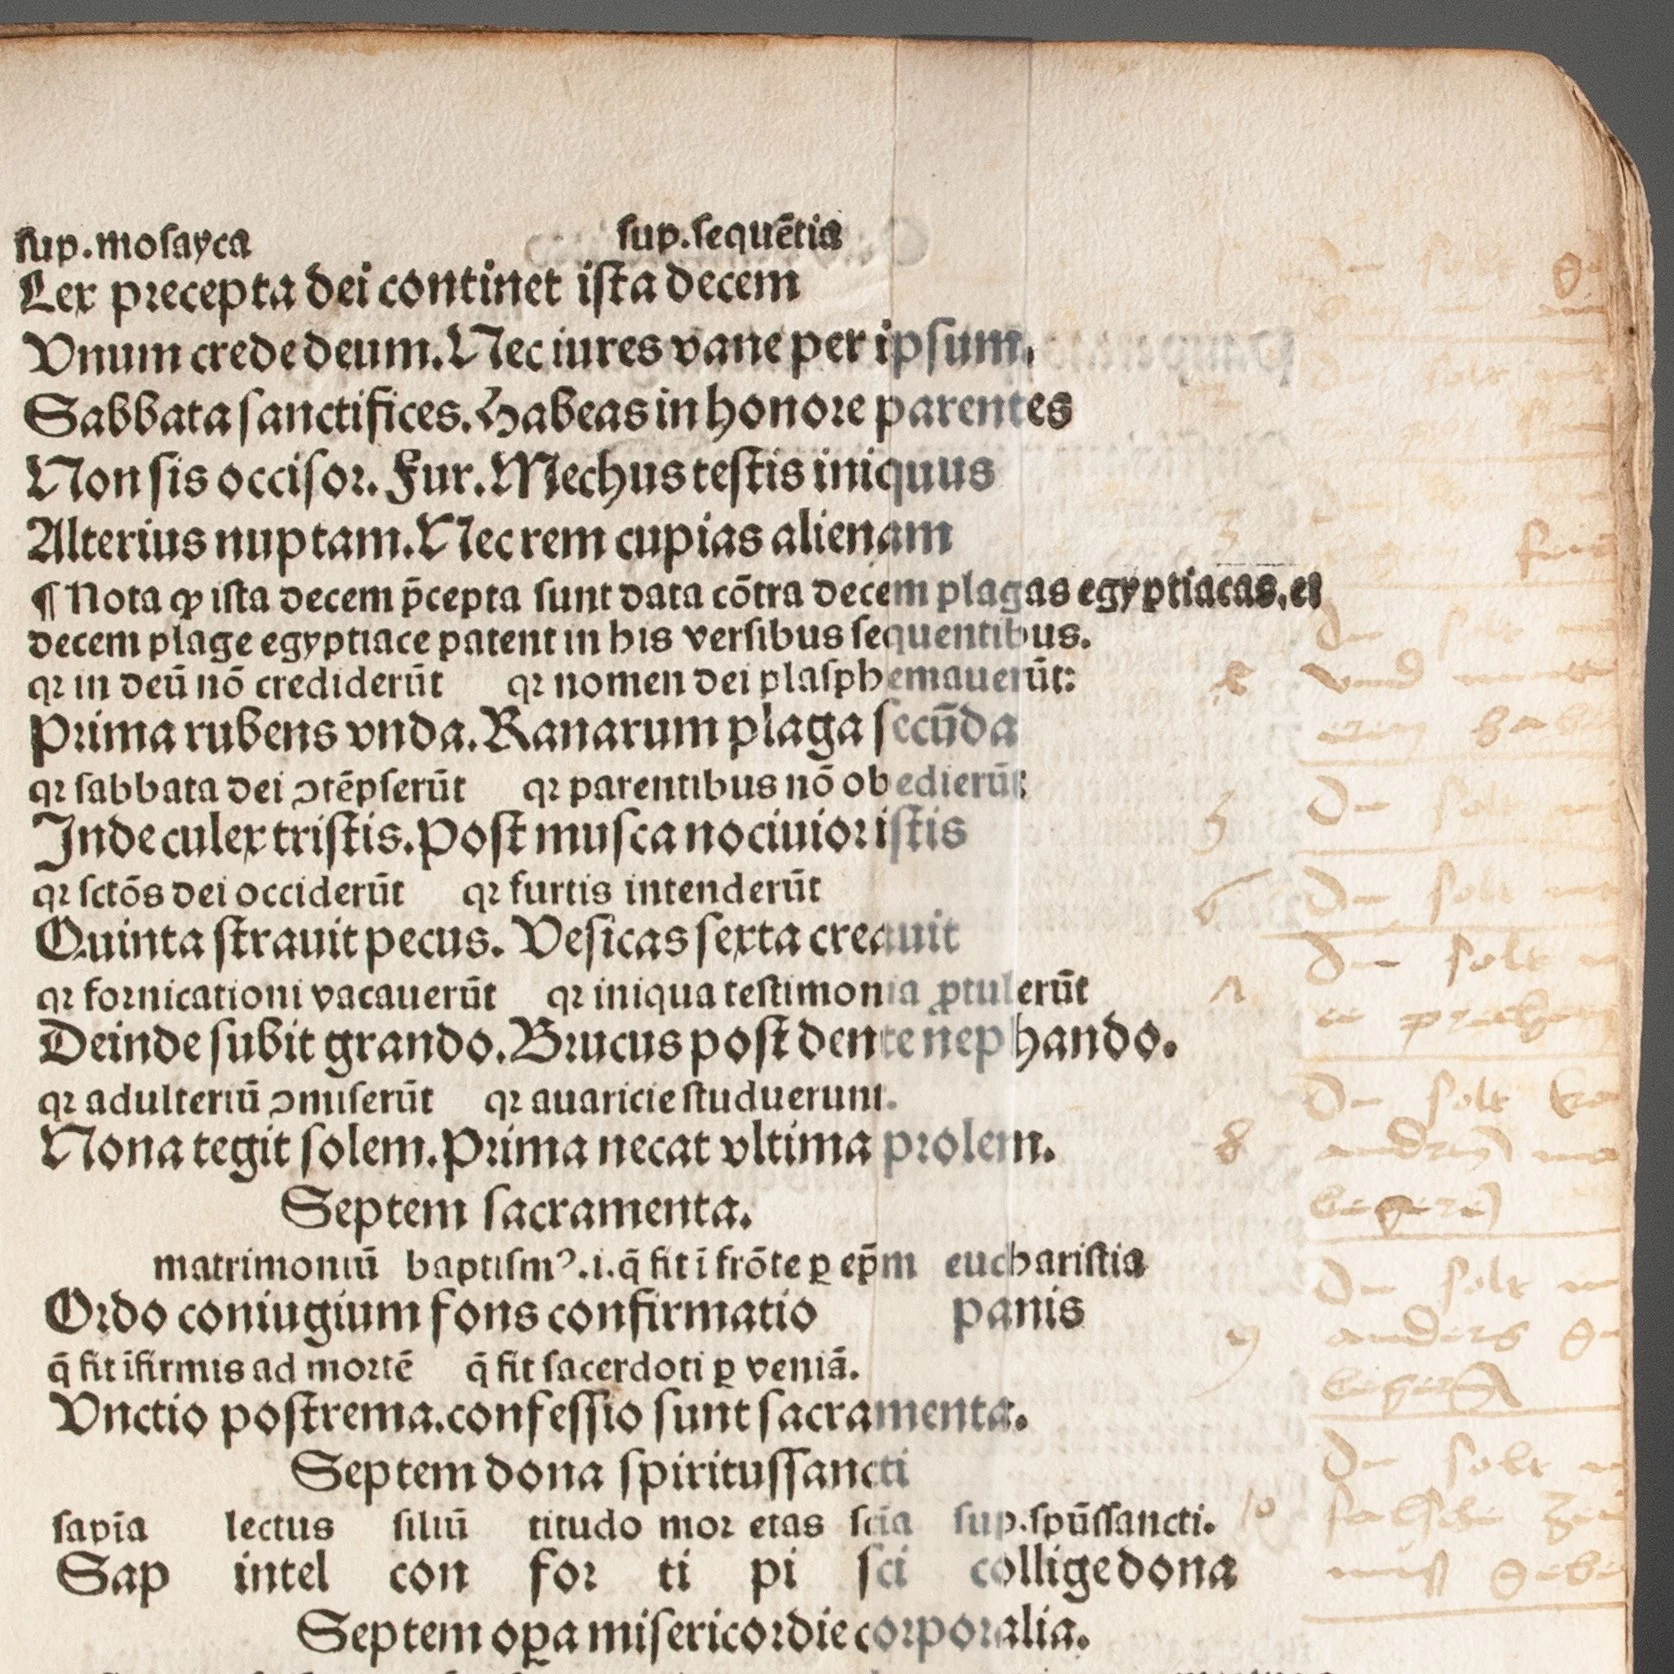 sup.mosayca sup.sequētia
Lex precepta dei continet ista decem
Vnum crede deum. Nec iures vane per ipsum.
Sabbata sanctifices. Habeas in honore parentes
Non sis occisor. Fur. Mechus testis iniquus
Alterius nuptam. Nec rem cupias alienam
¶ Nota ꝙ ista decem p̄cepta sunt data cōtra decem plagas egyptiacas. et
decem plage egyptiace patent in his versibus sequentibus.
qꝛ in deū nō crediderūt qꝛ nomen dei plasphemauerūt:
Prima rubens vnda. Ranarum plaga secūda
qꝛ sabbata dei ↄtēpserūt qꝛ parentibus nō obedierūt:
Inde culex tristis. Post musca nociuior istis
qꝛ sctōs dei occiderūt qꝛ furtis intenderūt
Quinta strauit pecus. Vesicas sexta creauit
qꝛ fornicationi vacauerūt qꝛ iniqua testimonia ꝓtulerūt
Deinde subit grando. Brucus post dente nephando.
qꝛ adulteriū ↄmiserūt qꝛ auaricie studuerunt.
Nona tegit solem. Prima necat vltima prolem.
Septem sacramenta.
matrimoniū baptismꝰ.i.q̄ fit ī frōte ꝑ ep̄m eucharistia
Ordo coniugium fons confirmatio panis
q̄ fit īfirmis ad mortē q̄ fit sacerdoti ꝑ veniā.
Vnctio postrema. confessio sunt sacramenta.
Septem dona spiritussancti
sapīa lectus siliū titudo mor etas scīa sup.spūssancti.
Sap intel con for ti pi sci collige dona
Septem oꝑa misericordie corporalia.
3
Du solt
vnd
5 Du solt
6 Du solt
Du solt
Du solt
8
Du solt
anders
Du solt
10